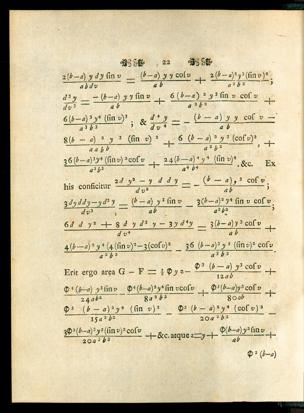 22
2(b—a) y dy sin v / ab dv = (b—a) y y cos v / ab + 2(b—a)²y³(sin v)² / a²b² ;
d³y / dv³ = —(b—a) y y sin v / ab + 6(b—a)²y³ sin v cos v / a²b² +
6(b—a)³y⁴(sin v)³ / a³b³ ; & d⁴y / dv⁴ = — (b—a) y y cos v / ab —
8(b—a)²y³(sin v)² / aabb + 6(b—a)²y³(cos v)² / a²b² , +
36(b—a)³y⁴(sin v)²cos v / a³b³ + 24(b—a)⁴y⁵(sin v)⁴ / a⁴b⁴ . &c. Ex
his conficitur 2dy² — y d d y / dv² = — (b—a) y³ cos v / ab ;
3 dy ddy — y d³y / dv³ = (b—a) y³ sin v / ab — 3(b—a)²y⁴ sin v cos v / a²b² ,
6 d d y² + 8 d y d³y — 3 y d⁴y / dv⁴ = 3(b—a) y³ cos v / ab +
4(b—a)²y⁴(4(sin v)²—3(cos v)² / a²b² — 36(b—a)³y⁵(sin v)² cos v / a³b³
Erit ergo area G — F = ½ Φ y y — Φ³(b—a) y³ cos v / 12ab +
Φ⁴(b—a) y³ sin v / 24ab — Φ⁴(b—a)²y⁴ sin v cos v / 8a²b² + Φ⁵(b—a) y³ cos v / 80ab +
Φ⁵(b—a)²y⁴(sin v)² / 15a²b² — Φ⁵(b—a)²y⁴(cos v)² / 20a²b²
3Φ⁵(b—a)³y⁵(sin v)²cos v / 20a³b³ + &c. atque z = y + Φ(b—a) y² sin v / ab +
Φ² (b—a)